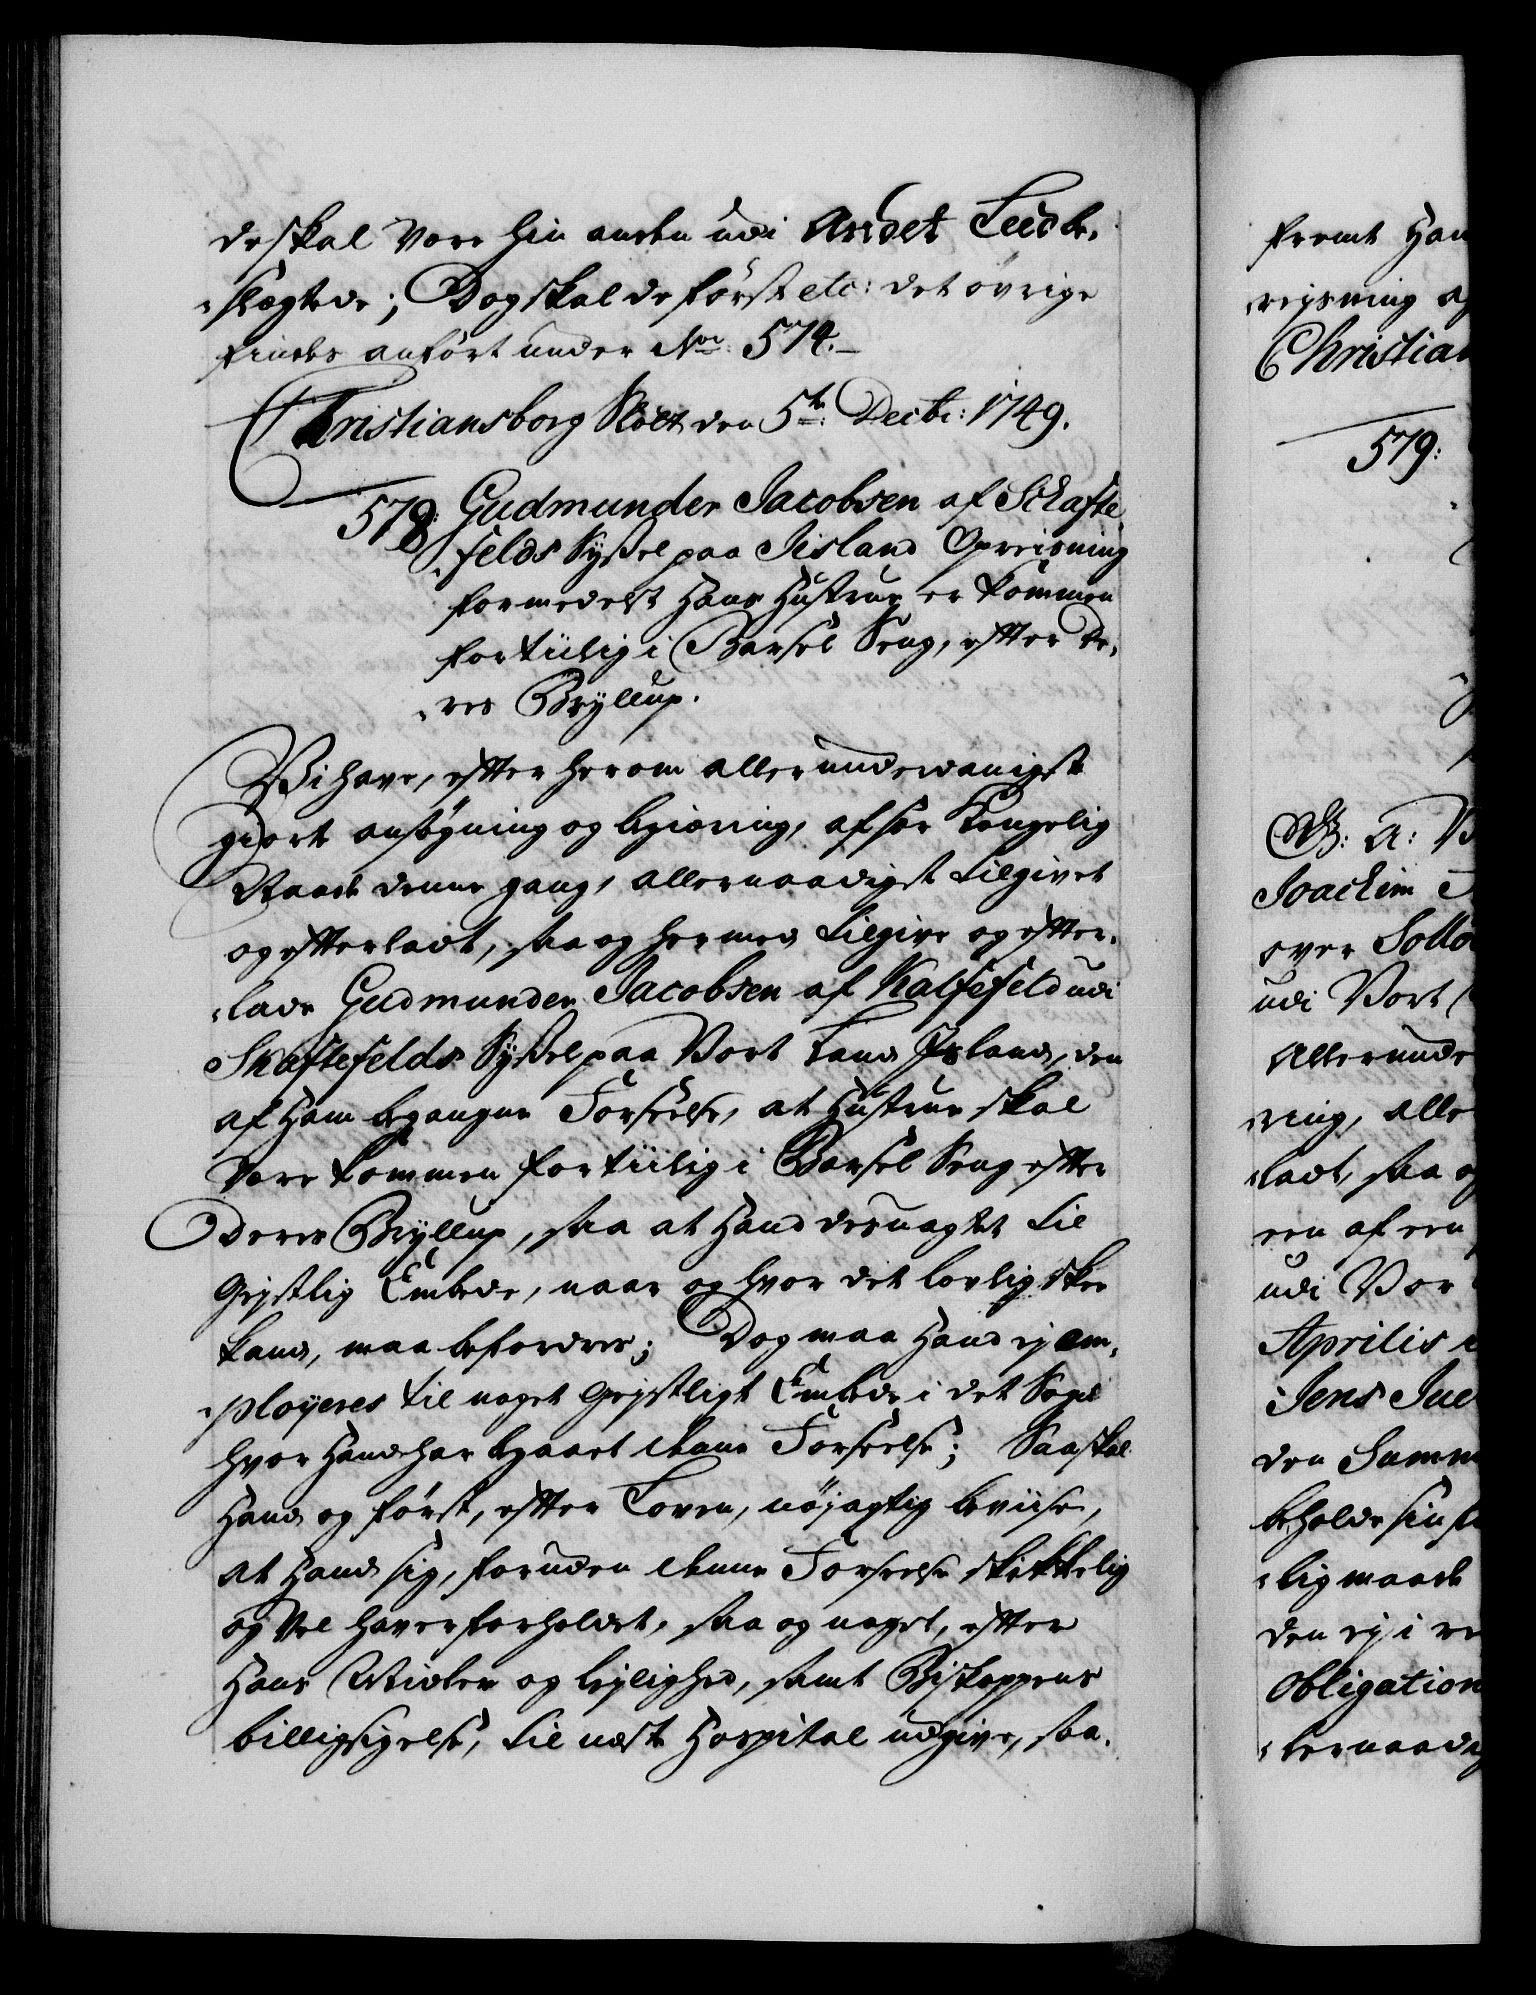 de skal være hin anden udi Andet Leed be,
„slægtede; Dog skal de först etc: det övrige
findes anfört under No: 574.
Christiansborg Slott den 5te Decbr: 1749.
578: Gudmunder Jacobsen af Schafte
„felds Sÿssel paa Jisland Opreisning
formedelst Hans Hustrue er kommen
fortiilig i Barsel Seng, efter de,
„res Brÿllup.
Vi have, efter herom allerunderdanigst
giort ansögning og begiæring, af sær Kongelig
Naade denne gang, allernaadigst tilgivet
og efterladt, saa og hermed tilgive og efter,
„lade Gudmunder Jacobsen af Kalfefeld udi
Skaftefelds Sÿssel paa Vort Land Jsland, den
af Ham begangne Forseelse, at Hustrue skal
være kommen fortiilig i Barsel Seng efter
Deres Brÿllup, saa at Hand desuagtet til
Geistlig Embede, naar og hvor det lovlig skee
kand, maa befordres; Dog maa Hand ej em,
„ployeres til noget Geistligt Embede i det Sogn
hvor Hand har begaaet denne Forseelse; Saa skal
Hand og först, efter Loven, nöjagtig beviise,
at Hand sig, foruden denne Forseelse skikkelig
og vel haver forholdet, saa og noget, efter
Hans Midler og lejlighed, samt Biskoppens
billigsigelse, til næste Hospital udgive, saa,
fremt Han
„rejsning af
Christian
579:
W: A: V
Joachim
over
udi Vort
Allerunde
„ring, alle
„ladt, saa og
een af een
udi Vor
Aprilis
Jens Juel
den Summ
beholde sin
„lig maade
den ej i
Obligation
„lernaadig